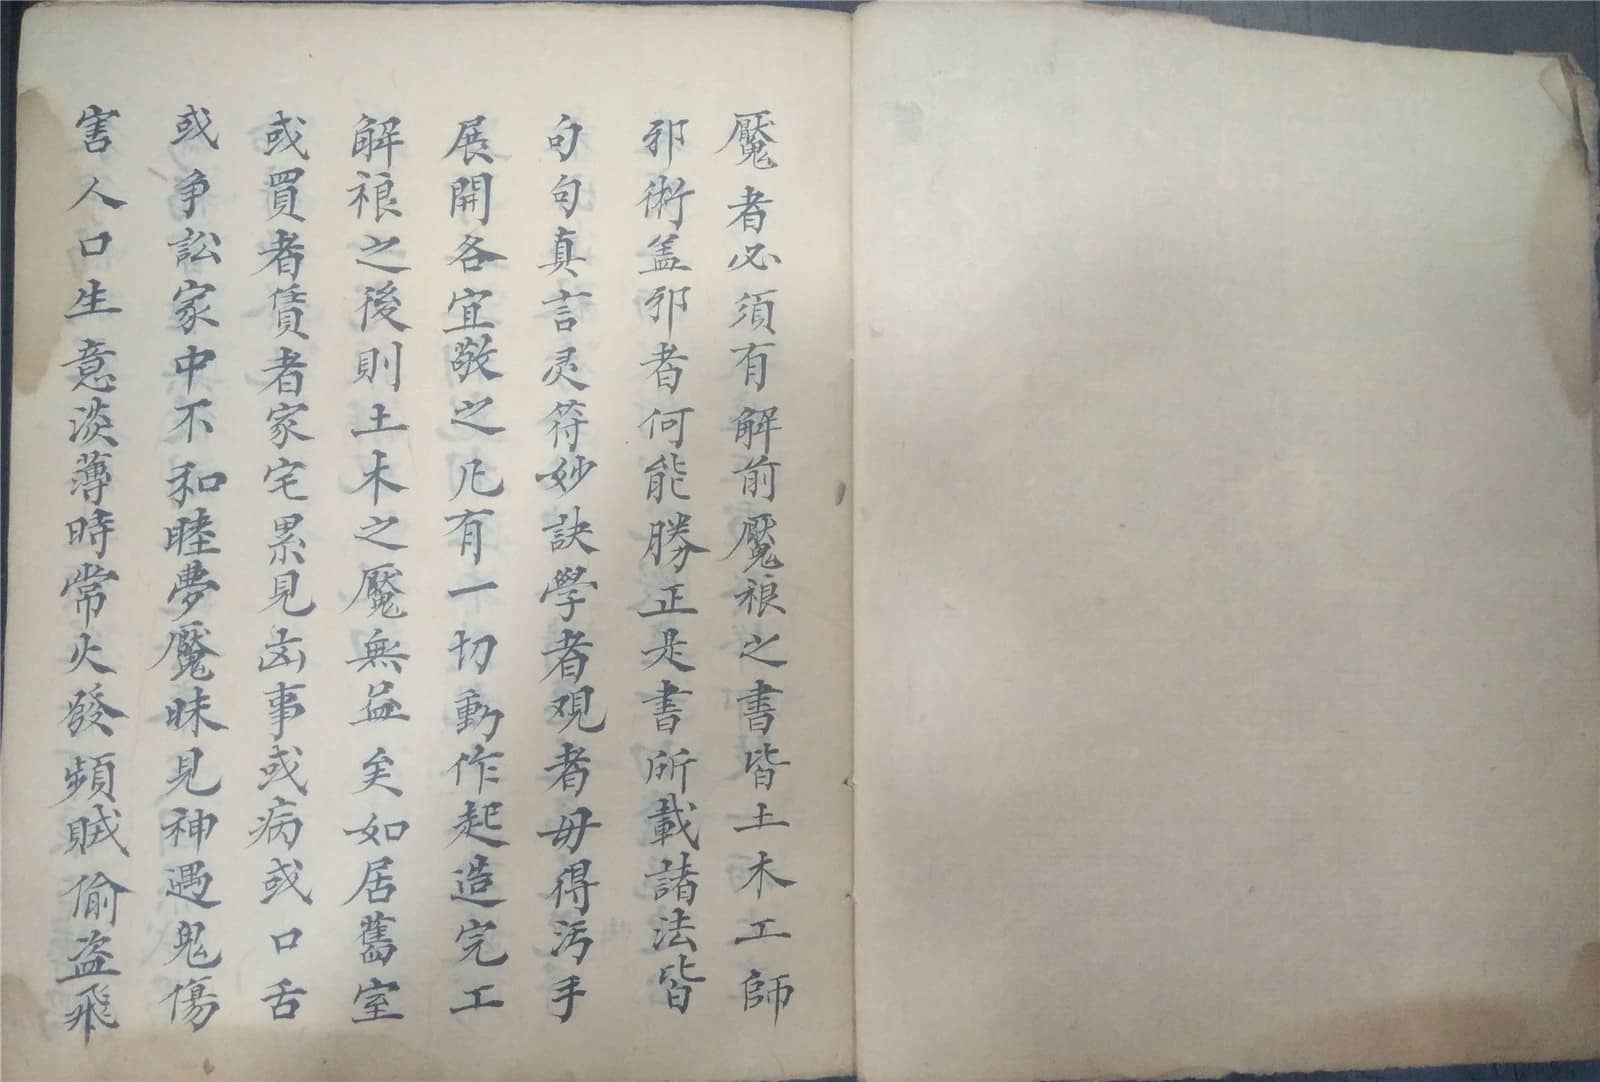 魘者必須有解前魘禳之書皆土木工師
邪術盖邪者何能勝正是書所載諸法皆
句句真言灵符妙訣學者观者毋得污手
展開各宜敬之凡有一切動作起造完工
解禳之後則土木之魘無益矣如居舊室
或買者賃者家宅累見凶事或病或口舌
或爭訟家中不和睦夢魘昧見神遇鬼傷
害人口生意淡薄時常火發頻賊偷盗飛